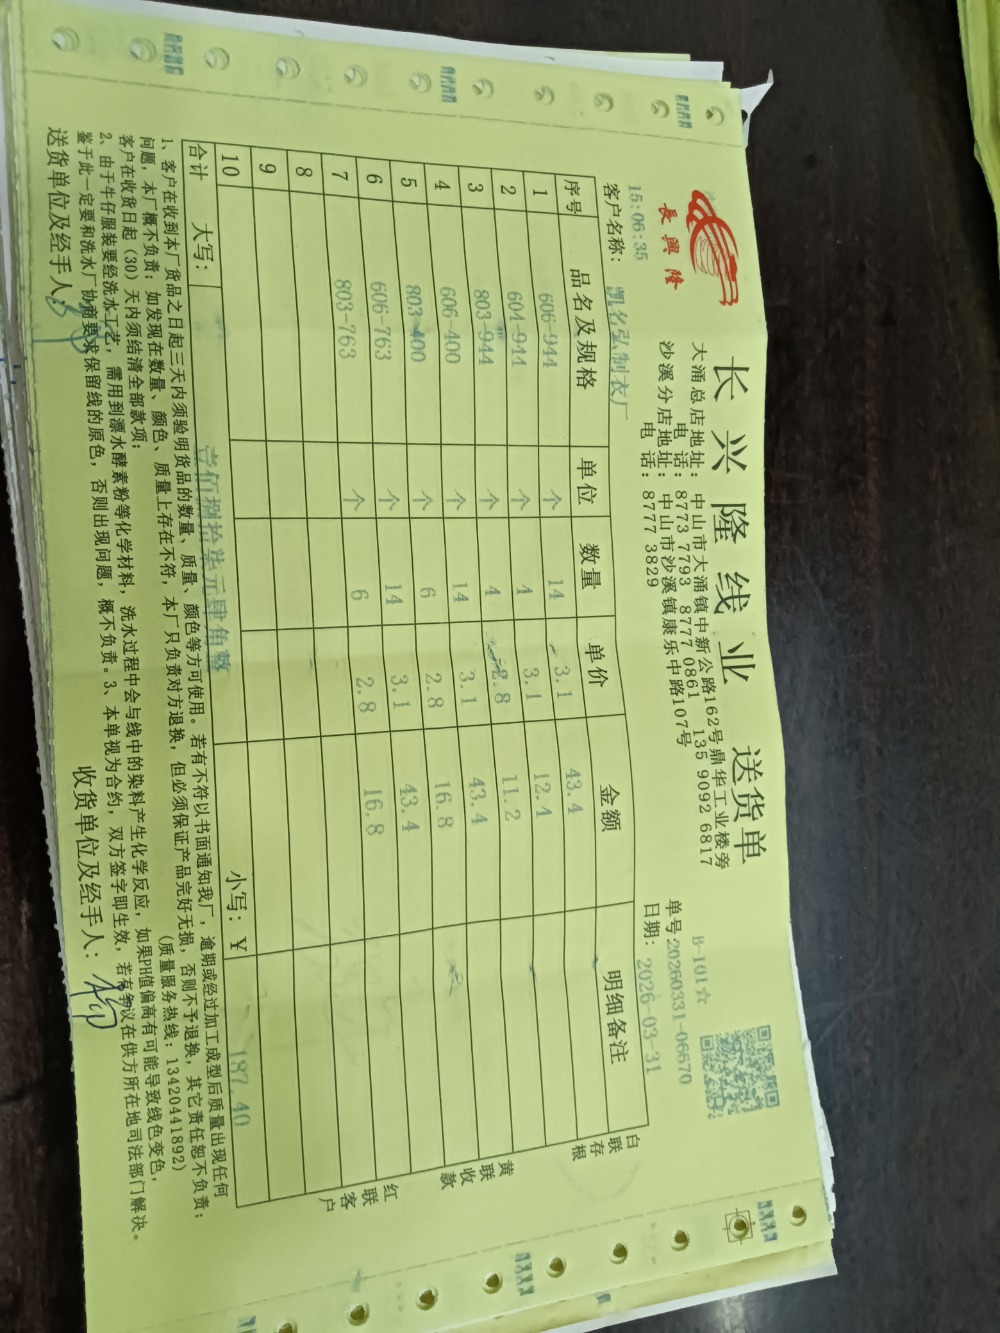 長興隆
长兴隆线业 送货单
大涌总店地址：中山市大涌镇中新公路162号鼎华工业楼旁
电 话：8773 7793 8777 0861 135 9092 6817
沙溪分店地址：中山市沙溪镇康乐中路107号
电 话：8777 3829
B-101☆
单号20260331-06670
15:06:35
客户名称：凯名弘制衣厂
日期：2026-03-31
序号 品名及规格 单位 数量 单价 金额 明细备注
1 606-944 个 14 3.1 43.4
2 604-944 个 4 3.1 12.4
3 803-944 个 4 2.8 11.2
4 606-400 个 14 3.1 43.4
5 803-400 个 6 2.8 16.8
6 606-763 个 14 3.1 43.4
7 803-763 个 6 2.8 16.8
8
9
10
合计 大写：壹佰捌拾柒元肆角整 小写：￥187.40
白联存根
黄联收款
红联客户
1、客户在收到本厂货品之日起三天内须验明货品的数量、质量、颜色等方可使用。若有不符以书面通知我厂，逾期或经过加工成型后质量出现任何
问题，本厂概不负责；如发现在数量、颜色、质量上存在不符，本厂只负责对方退换，但必须保证产品完好无损，否则不予退换，其它责任恕不负责；
客户在收货日起（30）天内须结清全部款项； (质量服务热线：13420441892)
2、由于牛仔服装要经洗水工艺，需用到漂水酵素粉等化学材料，洗水过程中会与线中的染料产生化学反应，如果PH值偏高有可能导致线色变色，
鉴于此一定要和洗水厂协商要求保留线的原色，否则出现问题，概不负责。3、本单视为合约，双方签字即生效，若有争议在供方所在地司法部门解决。
送货单位及经手人： 收货单位及经手人：